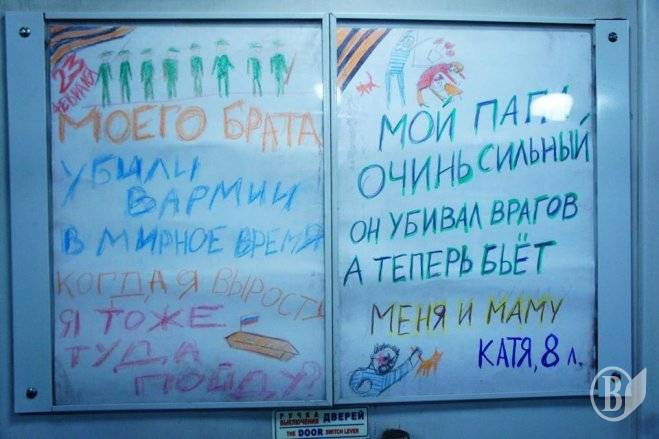 23
ФЕВРАЛЯ
МОЕГО БРАТА
УБИЛИ
ВАРМИИ
В МИРНОЕ ВРЕМЯ
КОГДА Я ВЫРОСТУ
Я ТОЖЕ
ТУДА
ПОЙДУ?
МОЙ ПАПА
ОЧИНЬ СИЛЬНЫЙ
ОН УБИВАЛ ВРАГОВ
А ТЕПЕРЬ БЬЁТ
МЕНЯ И МАМУ
КАТЯ, 8 л.
РУЧКА
ВЫКЛЮЧЕНИЯ ДВЕРЕЙ
THE DOOR SWITCH LEVER
В